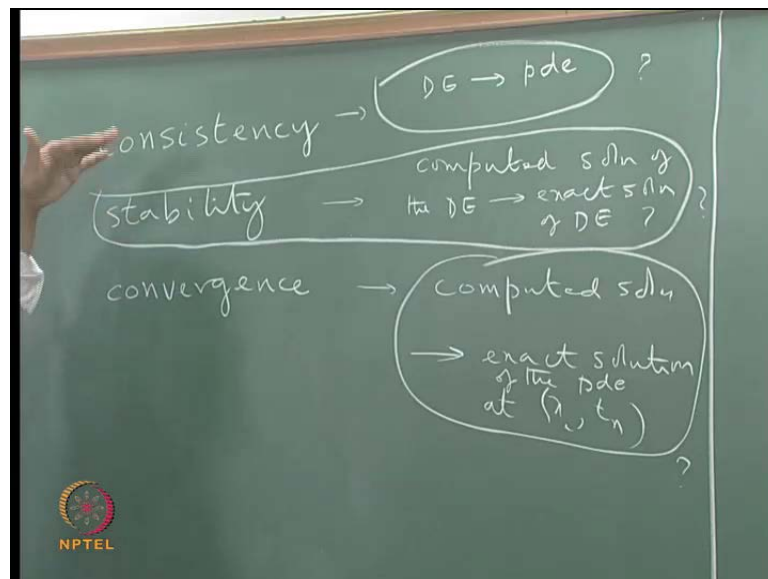 consistency → DE → pde ?
stability → computed soln of
the DE → exact soln
of DE ? ?
convergence → computed soln
→ exact solution
of the pde
at (xᵢ, tₙ)
?
NPTEL